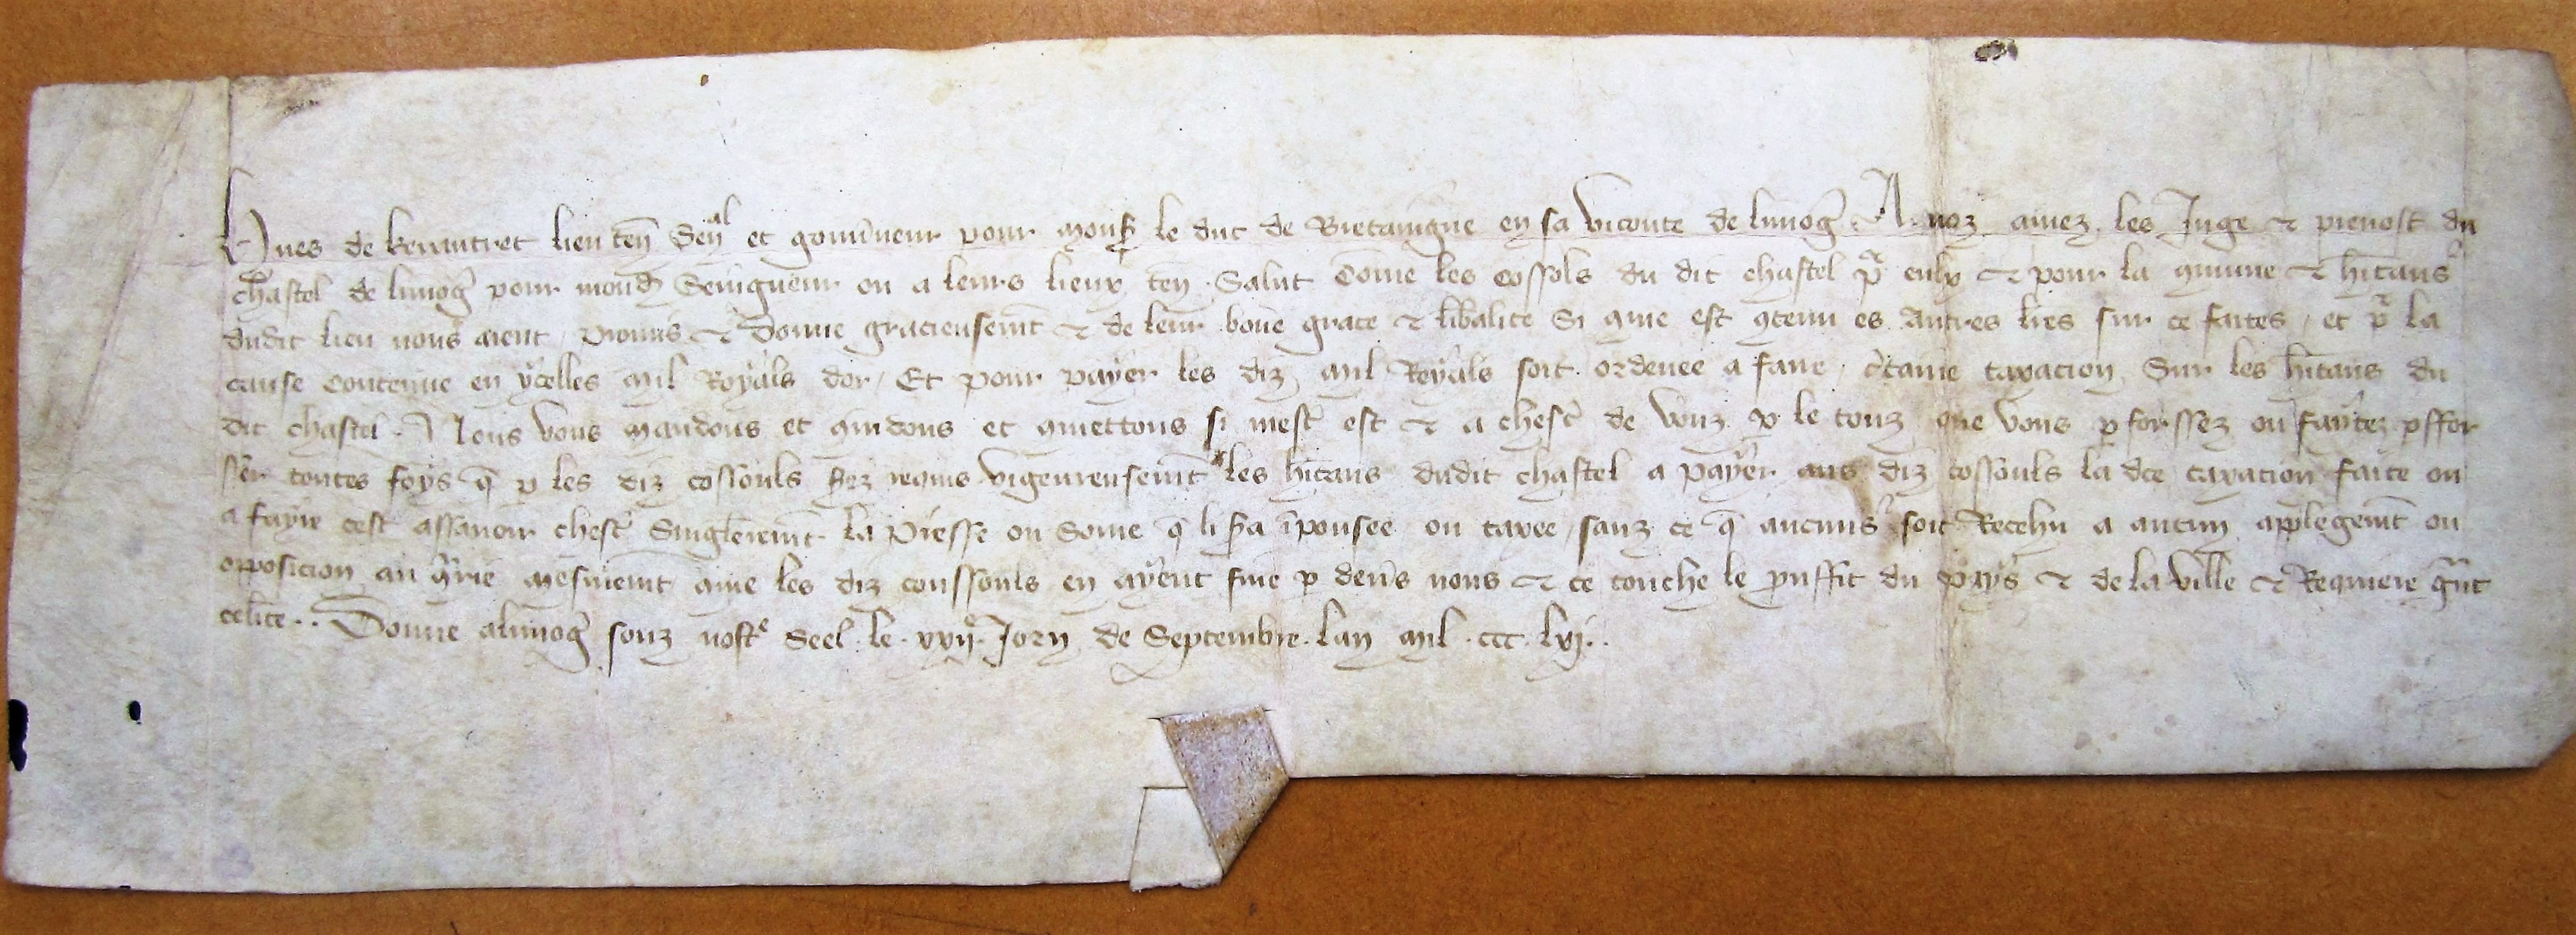 Hues de kerautret lieuten Senal et gouvneur pour mons le duc de Bretaingne en sa viconte de limog A noz amez les Juge & prevost du
chastel de limog pour mond Seingneur ou a leurs lieux ten Salut Come les cossols du dit chastel pr eulx & pour la cmune & hitans
dudit lieu nous aient promis & donne gracieusemt & de leur bone grace & libalite Si cme est ctenu es autres lres sur ce faites et pr la
cause contenue en ycelles mil Royals dor Et pour payer les diz mil Royals soit ordenee a faire ctaine taxacion Sur les hitans du
dit chastel Nous vous mandons et cmdons et cmettons si mest est & a chesc de vouz p le touz que vous pforssez ou faytez pffor
ser toutes foys q p les diz cossouls serez requis vigeureusemt les hitans dudit chastel a payer aus diz cossouls la dce taxacion faite ou
a fayre cest assavoir chesc Singleremt la Piesse ou Some q li sra iponsee ou taxee sanz ce q aucuns soit Recehu a aucun applegemt ou
opposicion au crie mesmemt cme les diz coussouls en ayent fine p devs nous & ce touche le pruffit du pays & de la ville & Requiere grnt
celite Donne a limog souz nostre Seel le xxii Jorn de Septembre lan mil ccc lvj